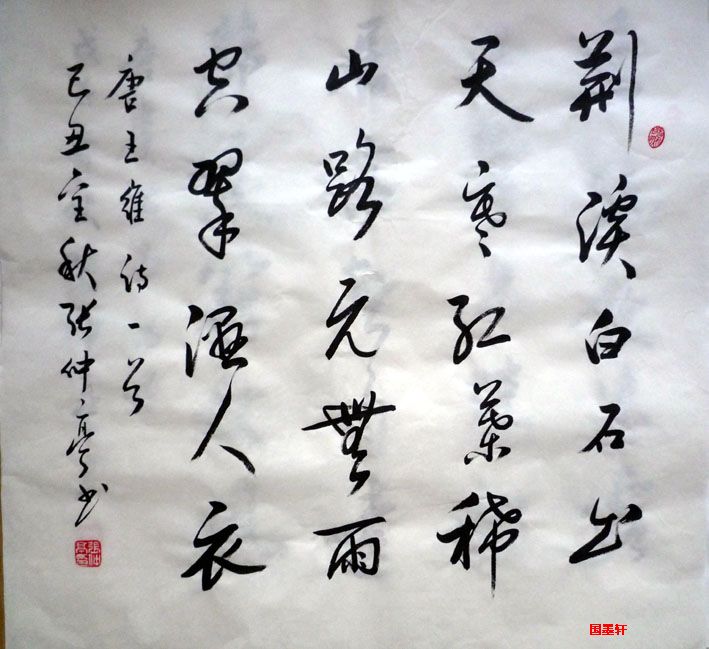 荆溪白石出
天寒红葉稀
山路元無雨
空翠湿人衣
唐王維诗一首
己丑金秋张仲亭书
国墨轩